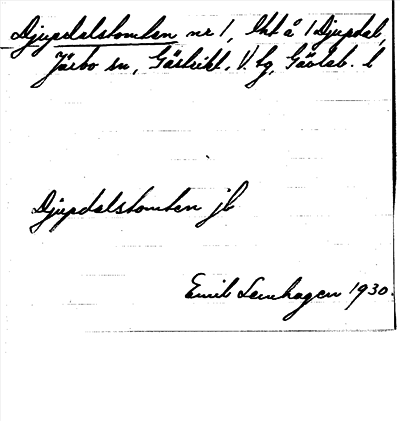 Djupdalstomten nr 1, lht å 1 Djupdal,
Järbo sn, Gästrikl. V. tg, Gävleb. l
Djupdalstomten jb
Emil Lenhagen 1930.